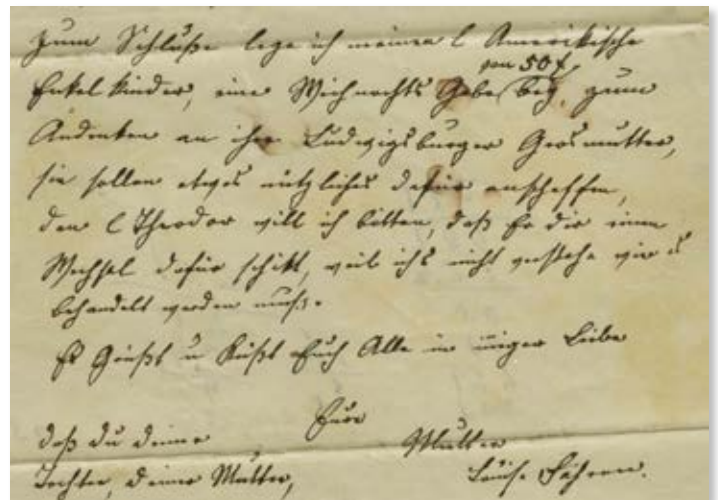 Zum Schluße lege ich meinen l Amerikische
von 50 f
Enkelkinder, eine Weihnachts Gabe bey, zum
Andenken an ihre Ludwigsburger Grosmutter,
sie sollen etwas nützliches dafür anschaffen,
den l Theodor will ich bitten, daß Er dir einen
Wechsel dafür schikt, weil ichs nicht verstehe wie es
behandelt werden muß.
Es Grüßt u Küßt Euch Alle in inniger Liebe
Eure
daß du deine Mutter
Tochter, deine Mutter, Louise